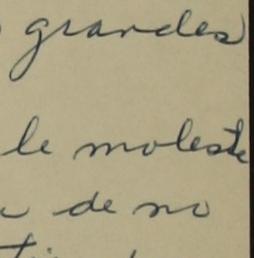 grandes
le moleste
de no